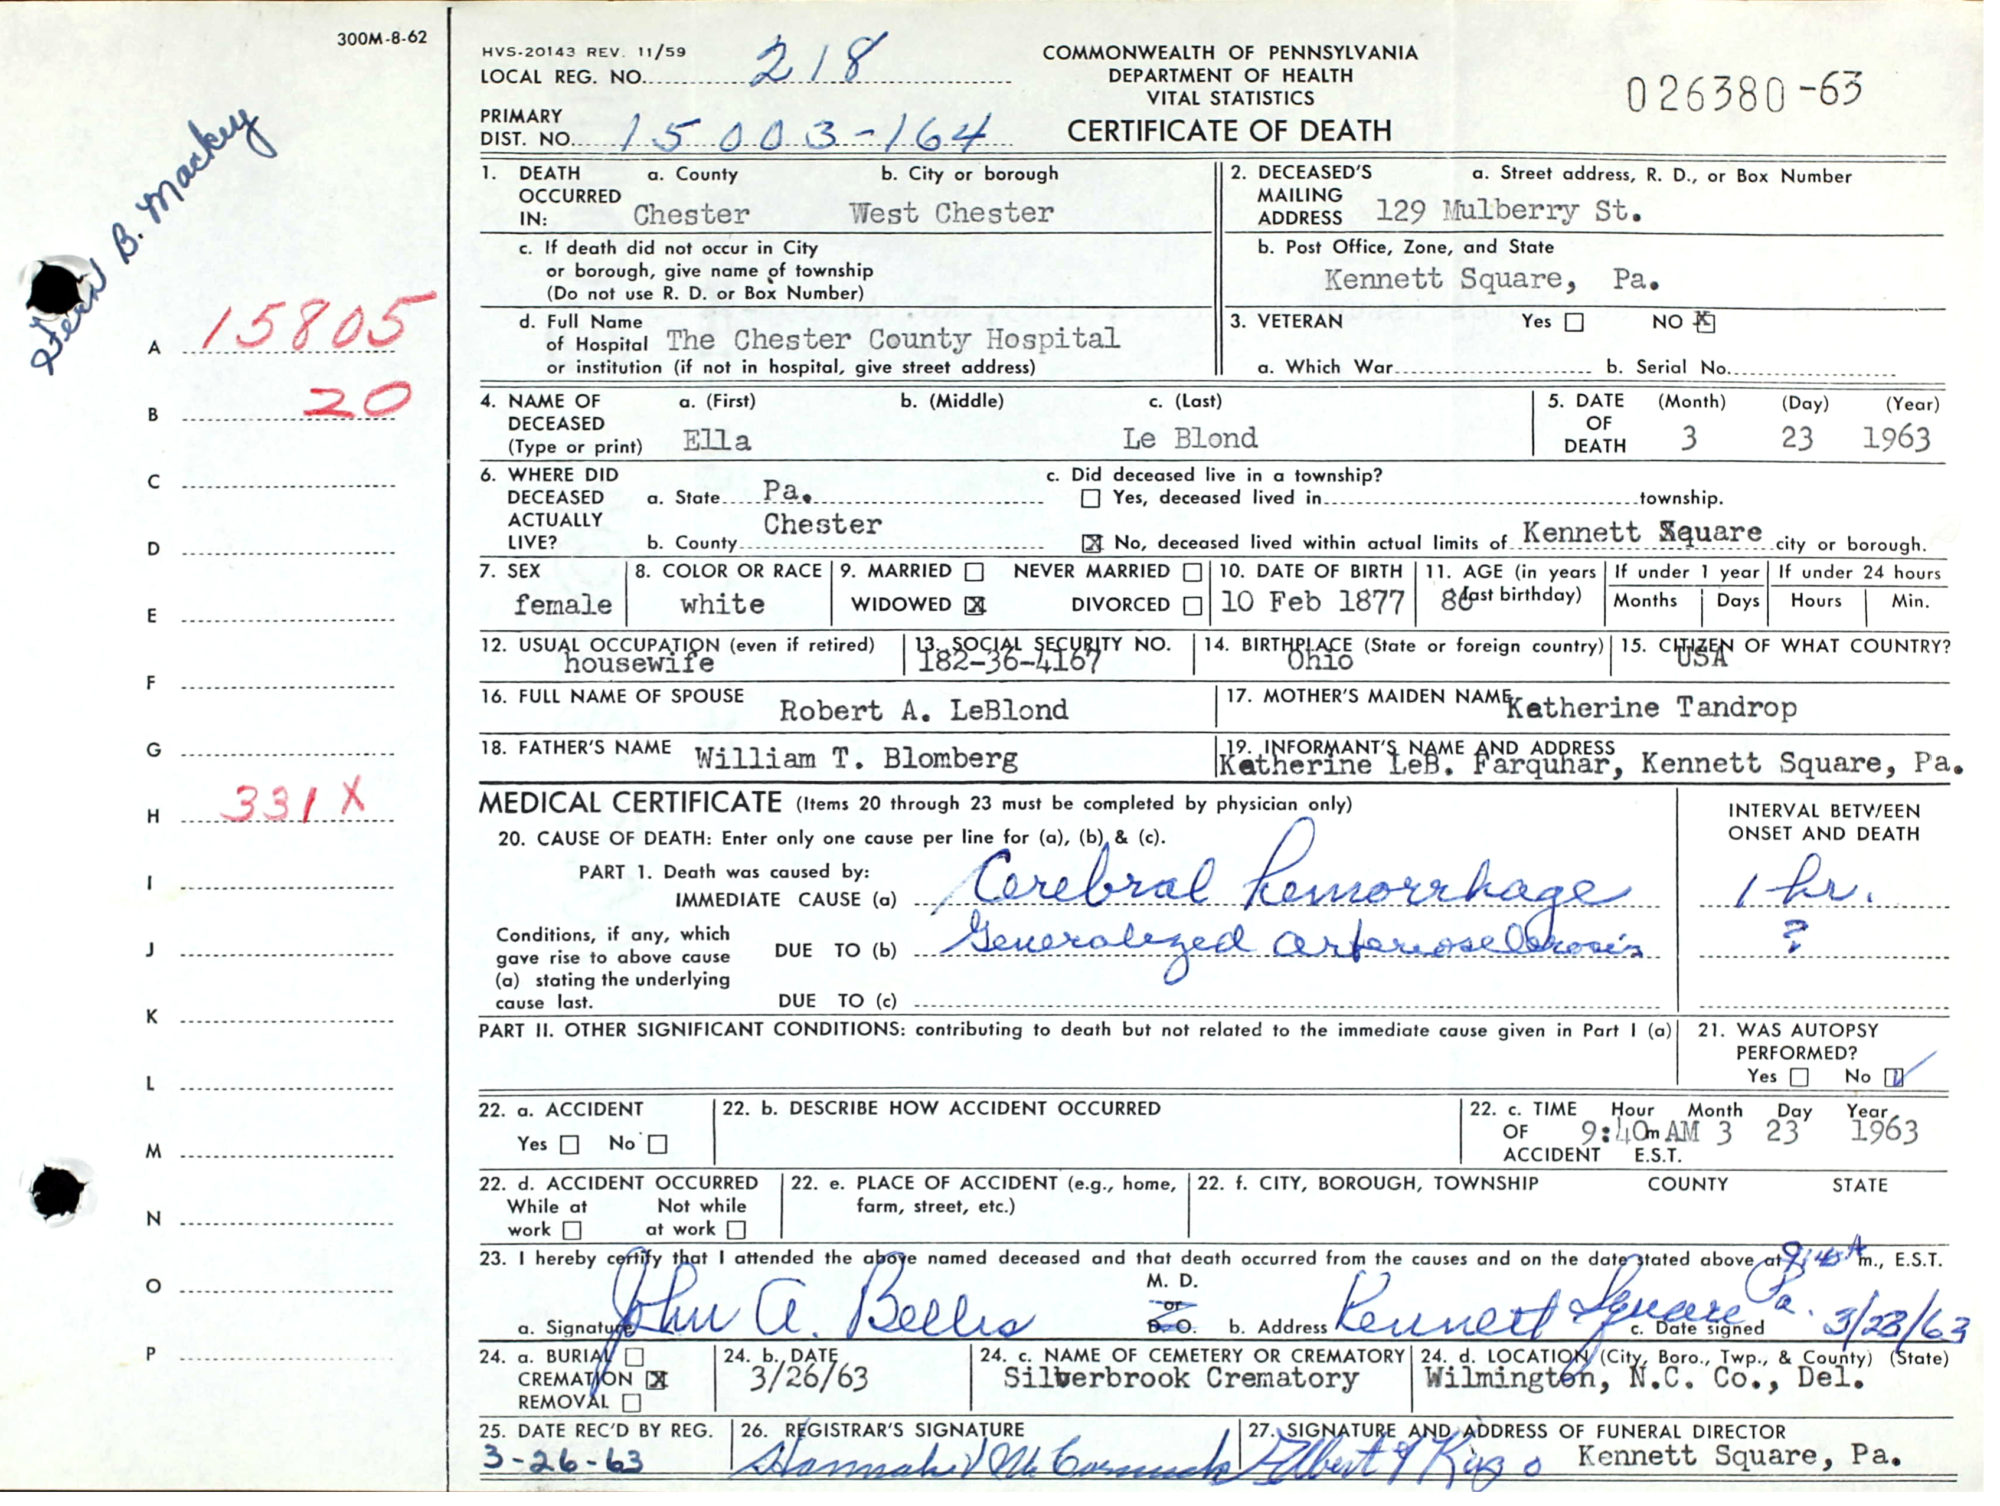 300M-8-62
HVS-20143 REV. 11/59
LOCAL REG. NO. 218
PRIMARY
DIST. NO. 15003-164
COMMONWEALTH OF PENNSYLVANIA
DEPARTMENT OF HEALTH
VITAL STATISTICS
CERTIFICATE OF DEATH
026380-63
B. Mackey
A 15805
B 20
C
D
E
F
G
H 331X
I
J
K
L
M
N
O
P
1. DEATH OCCURRED IN: a. County b. City or borough
Chester West Chester
c. If death did not occur in City
or borough, give name of township
(Do not use R. D. or Box Number)
d. Full Name
of Hospital The Chester County Hospital
or institution (if not in hospital, give street address)
2. DECEASED'S MAILING ADDRESS a. Street address, R. D., or Box Number
129 Mulberry St.
b. Post Office, Zone, and State
Kennett Square, Pa.
3. VETERAN Yes NO X
a. Which War b. Serial No.
4. NAME OF DECEASED (Type or print) a. (First) b. (Middle) c. (Last)
Ella Le Blond
5. DATE OF DEATH (Month) (Day) (Year)
3 23 1963
6. WHERE DID DECEASED ACTUALLY LIVE?
a. State Pa.
b. County Chester
c. Did deceased live in a township?
Yes, deceased lived in township.
X No, deceased lived within actual limits of Kennett Square city or borough.
7. SEX
female
8. COLOR OR RACE
white
9. MARRIED NEVER MARRIED
WIDOWED X DIVORCED
10. DATE OF BIRTH
10 Feb 1877
11. AGE (in years last birthday)
86
If under 1 year
Months Days
If under 24 hours
Hours Min.
12. USUAL OCCUPATION (even if retired)
housewife
13. SOCIAL SECURITY NO.
182-36-4167
14. BIRTHPLACE (State or foreign country)
Ohio
15. CITIZEN OF WHAT COUNTRY?
USA
16. FULL NAME OF SPOUSE Robert A. LeBlond
17. MOTHER'S MAIDEN NAME Katherine Tandrop
18. FATHER'S NAME William T. Blomberg
19. INFORMANT'S NAME AND ADDRESS
Katherine LeB. Farquhar, Kennett Square, Pa.
MEDICAL CERTIFICATE (Items 20 through 23 must be completed by physician only)
20. CAUSE OF DEATH: Enter only one cause per line for (a), (b) & (c).
INTERVAL BETWEEN
ONSET AND DEATH
PART 1. Death was caused by:
IMMEDIATE CAUSE (a) Cerebral hemorrhage 1 hr.
Conditions, if any, which
gave rise to above cause
(a) stating the underlying
cause last.
DUE TO (b) Generalized arteriosclerosis ?
DUE TO (c)
PART II. OTHER SIGNIFICANT CONDITIONS: contributing to death but not related to the immediate cause given in Part I (a)
21. WAS AUTOPSY
PERFORMED?
Yes No ✓
22. a. ACCIDENT
Yes No
22. b. DESCRIBE HOW ACCIDENT OCCURRED
22. c. TIME OF ACCIDENT Hour Month Day Year
9:40m AM 3 23 1963
E.S.T.
22. d. ACCIDENT OCCURRED
While at work Not while at work
22. e. PLACE OF ACCIDENT (e.g., home,
farm, street, etc.)
22. f. CITY, BOROUGH, TOWNSHIP COUNTY STATE
23. I hereby certify that I attended the above named deceased and that death occurred from the causes and on the date stated above at m., E.S.T.
a. Signature John A. Bellis M. D. or D. O. b. Address Kennett Square Pa. c. Date signed 3/23/63
24. a. BURIAL
CREMATION X
REMOVAL
24. b. DATE
3/26/63
24. c. NAME OF CEMETERY OR CREMATORY
Silverbrook Crematory
24. d. LOCATION (City, Boro., Twp., & County) (State)
Wilmington, N.C. Co., Del.
25. DATE REC'D BY REG.
3-26-63
26. REGISTRAR'S SIGNATURE
Hannah McCormick
27. SIGNATURE AND ADDRESS OF FUNERAL DIRECTOR
Kennett Square, Pa.